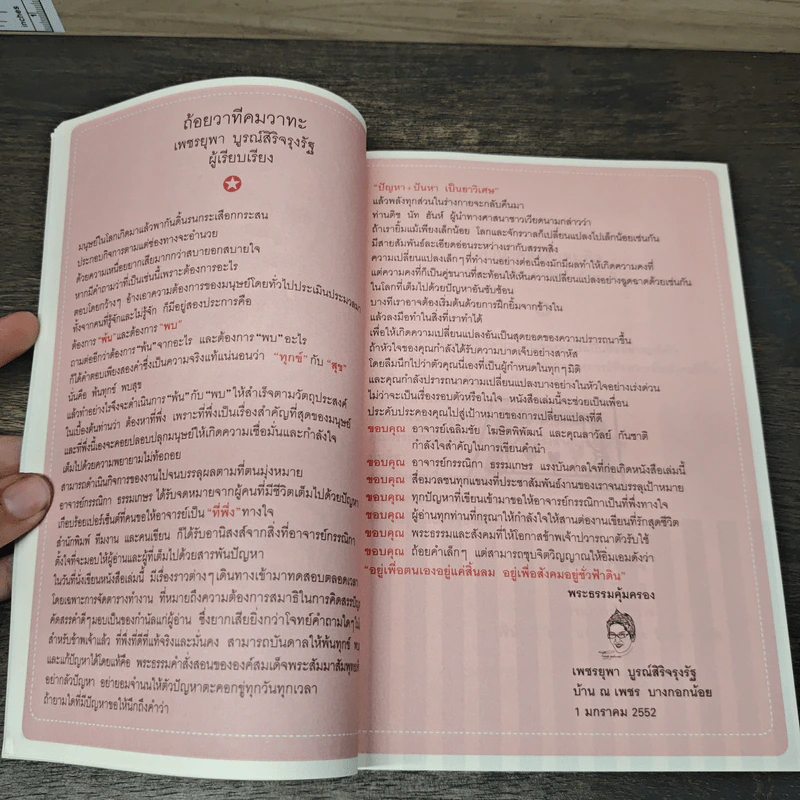 inches
ถ้อยวาทีคมวาทะ
เพชรยุพา บูรณ์สิริจรุงรัฐ
ผู้เรียบเรียง
มนุษย์ในโลกเกิดมาแล้วพากันดิ้นรนกระเสือกกระสน
ประกอบกิจการตามแต่ช่องทางจะอำนวย
ด้วยความเหนื่อยยากเสียมากกว่าสบายอกสบายใจ
หากมีคำถามว่าที่เป็นเช่นนี้เพราะต้องการอะไร
ตอบโดยกว้างๆ อ้างเอาความต้องการของมนุษย์โดยทั่วไปประเมินประมวลมา
ทั้งจากคนที่รู้จักและไม่รู้จัก ก็มีอยู่สองประการคือ
ต้องการ "พ้น" และต้องการ "พบ"
ถามต่ออีกว่าต้องการ "พ้น" จากอะไร และต้องการ "พบ" อะไร
ก็ได้คำตอบเพียงสองคำซึ่งเป็นความจริงแท้แน่นอนว่า "ทุกข์" กับ "สุข"
นั่นคือ พ้นทุกข์ พบสุข
แล้วทำอย่างไรจึงจะดำเนินการ "พ้น" กับ "พบ" ให้สำเร็จตามวัตถุประสงค์
ในเบื้องต้นท่านว่า ต้องหาที่พึ่ง เพราะที่พึ่งเป็นเรื่องสำคัญที่สุดของมนุษย์
และที่พึ่งนี้เองจะคอยปลอบปลุกมนุษย์ให้เกิดความเชื่อมั่นและกำลังใจ
เต็มไปด้วยความพยายามไม่ท้อถอย
สามารถดำเนินกิจการของงานไปจนบรรลุผลตามที่ตนมุ่งหมาย
อาจารย์กรรณิกา ธรรมเกษร ได้รับจดหมายจากผู้คนที่มีชีวิตเต็มไปด้วยปัญหา
เกือบร้อยเปอร์เซ็นต์ที่คนขอให้อาจารย์เป็น "ที่พึ่ง" ทางใจ
สำนักพิมพ์ ทีมงาน และคนเขียน ก็ได้รับอานิสงส์จากสิ่งที่อาจารย์กรรณิกา
ตั้งใจที่จะมอบให้ผู้อ่านและผู้ที่เต็มไปด้วยสารพันปัญหา
ในวันที่นั่งเขียนหนังสือเล่มนี้ มีเรื่องราวต่างๆ เดินทางเข้ามาทดสอบตลอดเวลา
โดยเฉพาะการจัดตารางทำงาน ที่หมายถึงความต้องการสมาธิในการคิดสรรปัญ
คัดสรรคำดีๆ มอบเป็นของกำนัลแก่ผู้อ่าน ซึ่งยากเสียยิ่งกว่าโจทย์คำถามใดๆ
สำหรับข้าพเจ้าแล้ว ที่พึ่งที่ดีที่แท้จริงและมั่นคง สามารถบันดาลให้พ้นทุกข์ พบ
และแก้ปัญหาได้โดยแท้คือ พระธรรมคำสั่งสอนขององค์สมเด็จพระสัมมาสัมพุทธเจ้า
อย่ากลัวปัญหา อย่ายอมจำนนให้ตัวปัญหาตะคอกขู่ทุกวันทุกเวลา
ถ้ายามใดที่มีปัญหาขอให้นึกถึงคำว่า
"ปัญหา + ปันหา เป็นยาวิเศษ"
แล้วพลังทุกส่วนในร่างกายจะกลับคืนมา
ท่านติช นัท ฮันห์ ผู้นำทางศาสนาชาวเวียดนามกล่าวว่า
ถ้าเรายิ้มแม้เพียงเล็กน้อย โลกและจักรวาลก็เปลี่ยนแปลงไปเล็กน้อยเช่นกัน
มีสายสัมพันธ์ละเอียดอ่อนระหว่างเรากับสรรพสิ่ง
ความเปลี่ยนแปลงเล็กๆ ที่ทำงานอย่างต่อเนื่องมักมีผลทำให้เกิดความคงที่
แต่ความคงที่ก็เป็นคู่ขนานที่สะท้อนให้เห็นความเปลี่ยนแปลงอย่างฉูดฉาดด้วยเช่นกัน
ในโลกที่เต็มไปด้วยปัญหาอันซับซ้อน
บางทีเราอาจต้องเริ่มต้นด้วยการฝึกยิ้มจากข้างใน
แล้วลงมือทำในสิ่งที่เราทำได้
เพื่อให้เกิดความเปลี่ยนแปลงอันเป็นสุดยอดของความปรารถนาขึ้น
ถ้าหัวใจของคุณกำลังได้รับความบาดเจ็บอย่างสาหัส
โดยลืมนึกไปว่าตัวคุณนี้เองที่เป็นผู้กำหนดในทุกๆ มิติ
และคุณกำลังปรารถนาความเปลี่ยนแปลงบางอย่างในหัวใจอย่างเร่งด่วน
ไม่ว่าจะเป็นเรื่องรอบตัวหรือในใจ หนังสือเล่มนี้จะช่วยเป็นเพื่อน
ประคับประคองคุณไปสู่เป้าหมายของการเปลี่ยนแปลงที่ดี
ขอบคุณ อาจารย์เฉลิมชัย โฆษิตพิพัฒน์ และคุณลาวัลย์ กันชาติ
กำลังใจสำคัญในการเขียนคำนำ
ขอบคุณ อาจารย์กรรณิกา ธรรมเกษร แรงบันดาลใจที่ก่อเกิดหนังสือเล่มนี้
ขอบคุณ สื่อมวลชนทุกแขนงที่ประชาสัมพันธ์งานของเราจนบรรลุเป้าหมาย
ขอบคุณ ทุกปัญหาที่เขียนเข้ามาขอให้อาจารย์กรรณิกาเป็นที่พึ่งทางใจ
ขอบคุณ ผู้อ่านทุกท่านที่กรุณาให้กำลังใจให้สานต่องานเขียนที่รักสุดชีวิต
ขอบคุณ พระธรรมและสังคมที่ให้โอกาสข้าพเจ้าปวารณาตัวรับใช้
ขอบคุณ ถ้อยคำเล็กๆ แต่สามารถชุบจิตวิญญาณให้อิ่มเอมดังว่า
"อยู่เพื่อตนเองอยู่แค่สิ้นลม อยู่เพื่อสังคมอยู่ชั่วฟ้าดิน"
พระธรรมคุ้มครอง
เพชรยุพา บูรณ์สิริจรุงรัฐ
บ้าน ณ เพชร บางกอกน้อย
1 มกราคม 2552